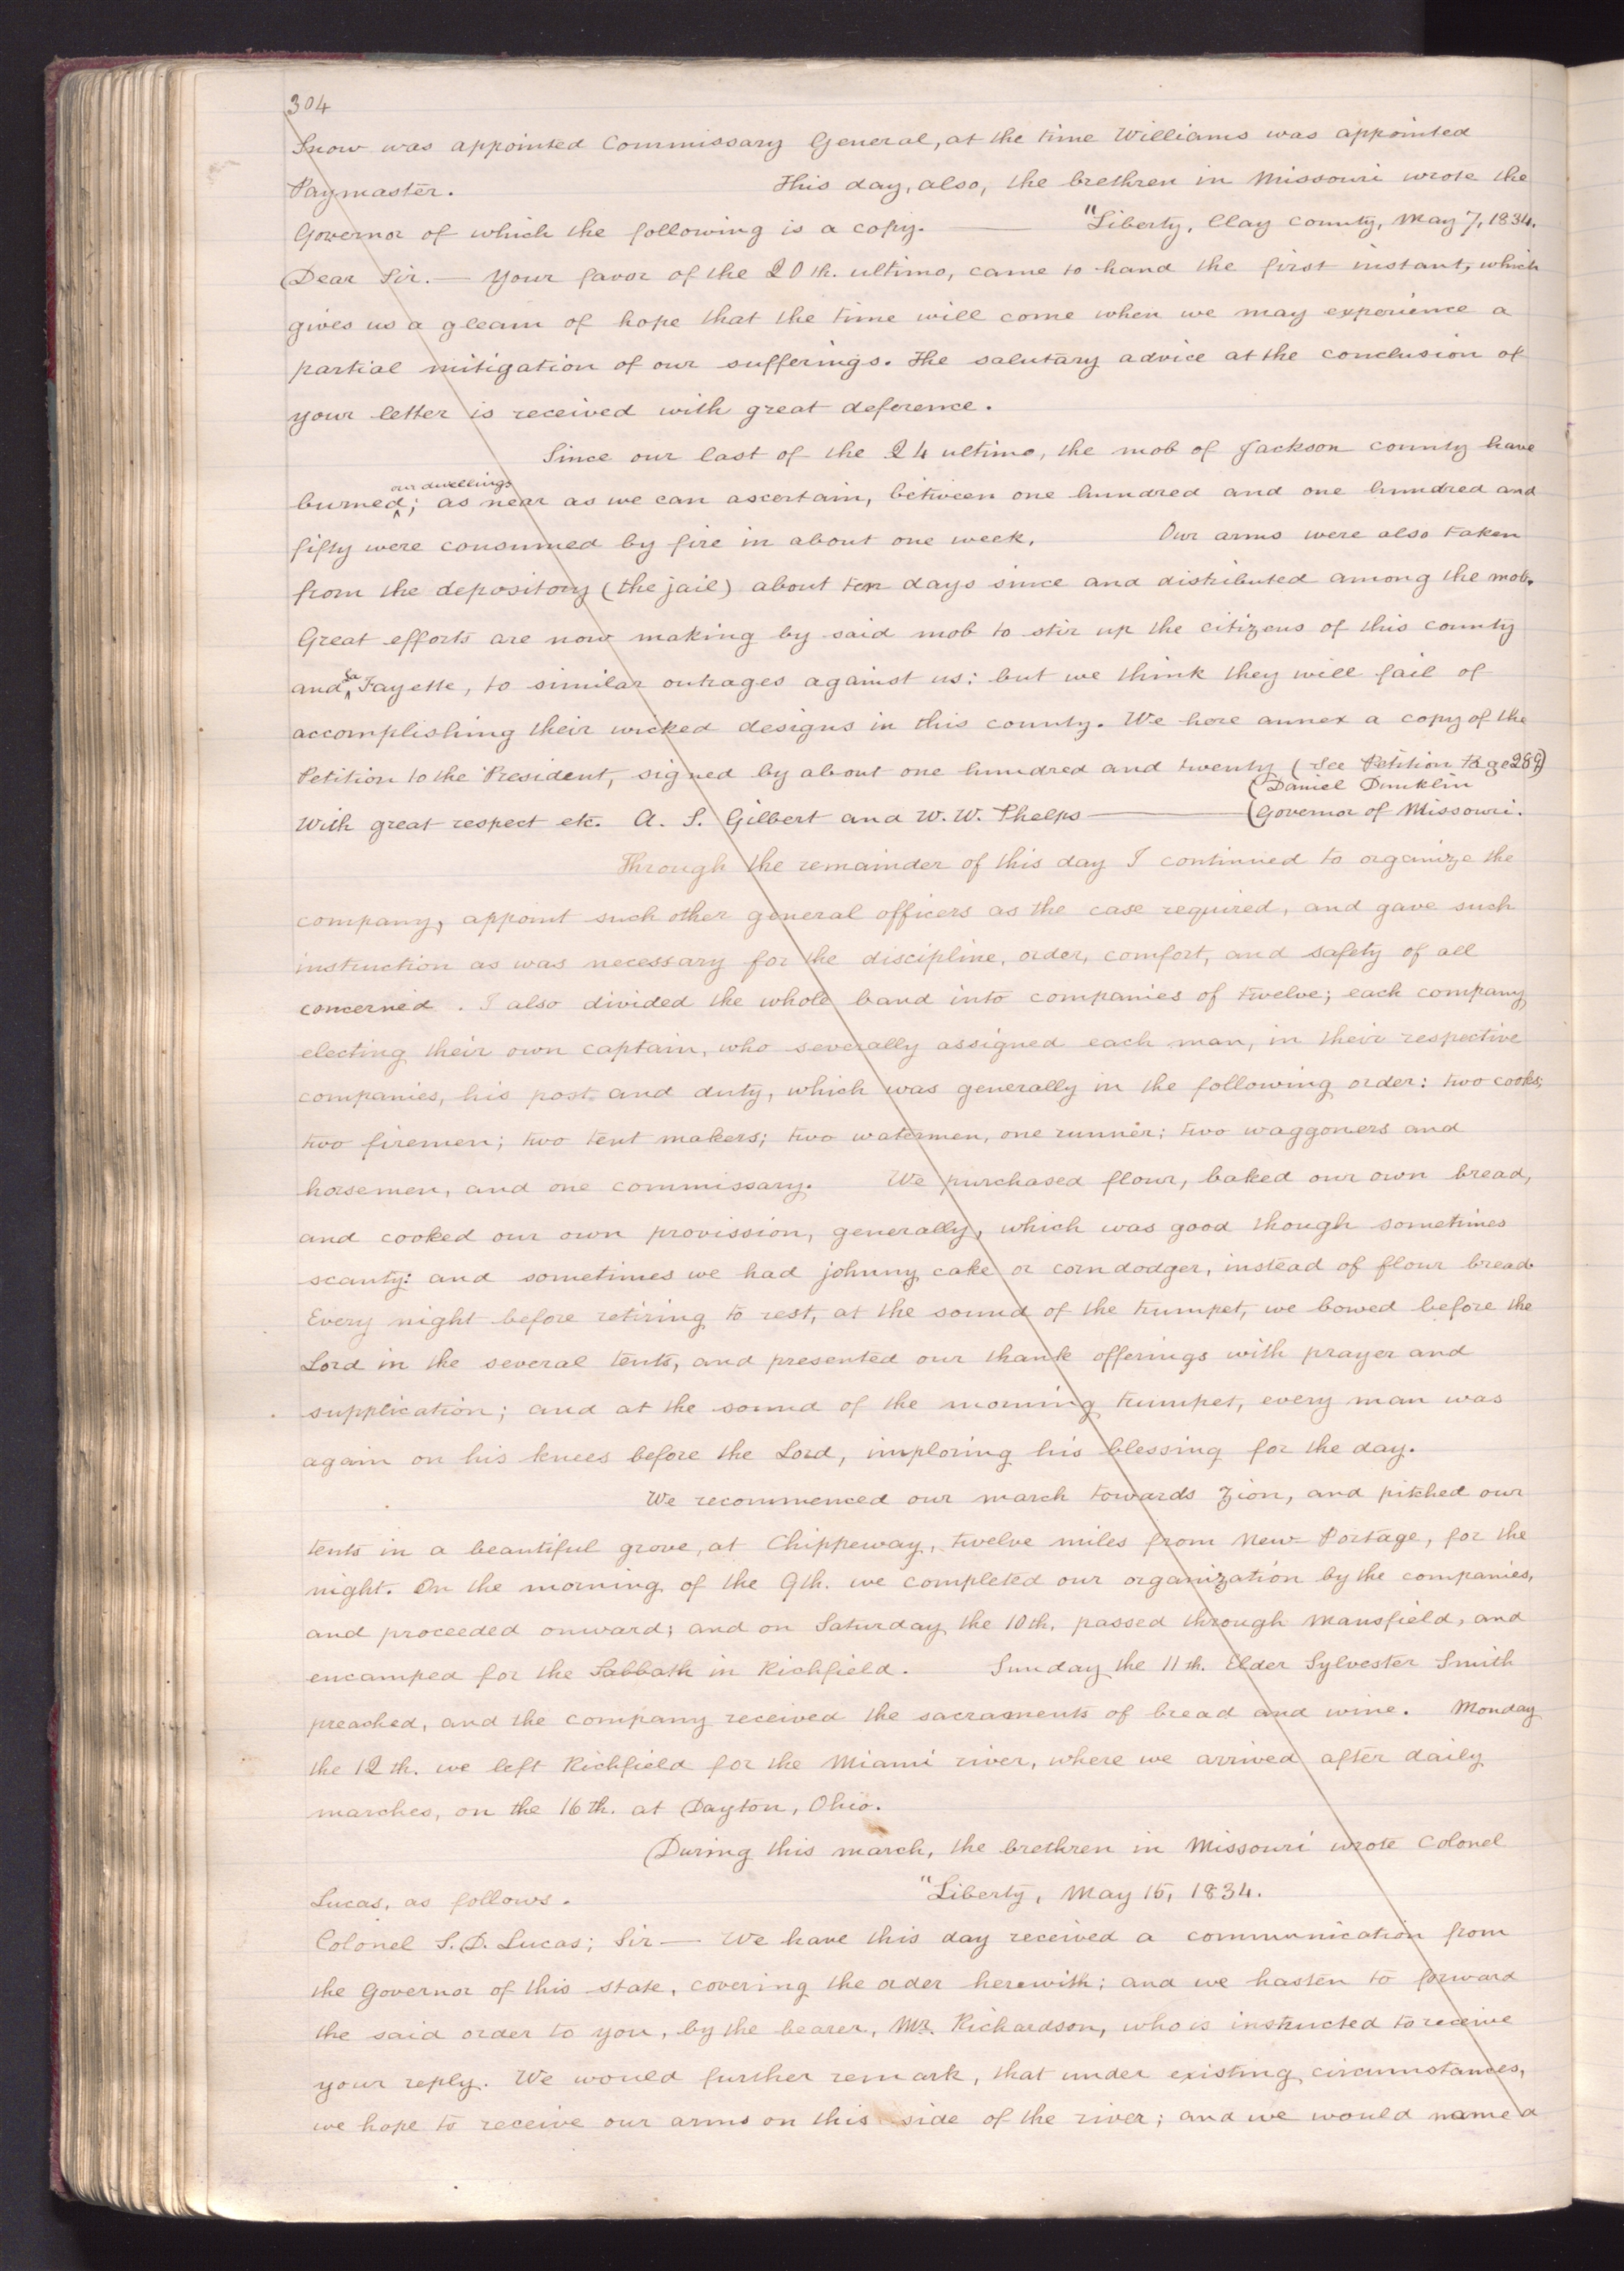 304
Snow was appointed Commissary General, at the time Williams was appointed
Paymaster. This day, also, the brethren in Missouri wrote the
Governor of which the following is a copy. — "Liberty, Clay County, May 7, 1834.
Dear Sir. — Your favor of the 20th. ultimo, came to hand the first instant, which
gives us a gleam of hope that the time will come when we may experience a
partial mitigation of our sufferings. The salutary advice at the conclusion of
your letter is received with great deference.
Since our last of the 24 ultimo, the mob of Jackson county have
our dwellings
burned; as near as we can ascertain, between one hundred and one hundred and
fifty were consumed by fire in about one week. Our arms were also taken
from the depository (the jail) about ten days since and distributed among the mob.
Great efforts are now making by said mob to stir up the citizens of this county
and La Fayette, to similar outrages against us; but we think they will fail of
accomplishing their wicked designs in this county. We here annex a copy of the
Petition to the President, signed by about one hundred and twenty (see Petition Page 289)
(Daniel Dunklin
With great respect etc. A. S. Gilbert and W. W. Phelps — (Governor of Missouri.
Through the remainder of this day I continued to organize the
company, appoint such other general officers as the case required, and gave such
instruction as was necessary for the discipline, order, comfort, and safety of all
concerned. I also divided the whole band into companies of twelve; each company
electing their own captain, who severally assigned each man, in their respective
companies, his post and duty, which was generally in the following order: two cooks;
two firemen; two tent makers; two watermen, one runner; two waggoners and
horsemen, and one commissary. We purchased flour, baked our own bread,
and cooked our own provission, generally, which was good though sometimes
scanty: and sometimes we had johnny cake or corn dodger, instead of flour bread.
Every night before retiring to rest, at the sound of the trumpet, we bowed before the
Lord in the several tents, and presented our thank offerings with prayer and
supplication; and at the sound of the morning trumpet, every man was
again on his knees before the Lord, imploring his blessing for the day.
We recommenced our march towards Zion, and pitched our
tents in a beautiful grove, at Chippeway, twelve miles from New Portage, for the
night. On the morning of the 9th. we completed our organization by the companies,
and proceeded onward; and on Saturday the 10th. passed through Mansfield, and
encamped for the Sabbath in Richfield. Sunday the 11th. Elder Sylvester Smith
preached, and the company received the sacraments of bread and wine. Monday
the 12th. we left Richfield for the Miami river, where we arrived after daily
marches, on the 16th. at Dayton, Ohio.
During this march, the brethren in Missouri wrote Colonel
Lucas, as follows. "Liberty, May 15, 1834.
Colonel S. D. Lucas; Sir — We have this day received a communication from
the Governor of this state, covering the order herewith; and we hasten to forward
the said order to you, by the bearer, Mr. Richardson, who is instructed to receive
your reply. We would further remark, that under existing circumstances,
we hope to receive our arms on this side of the river; and we would name a